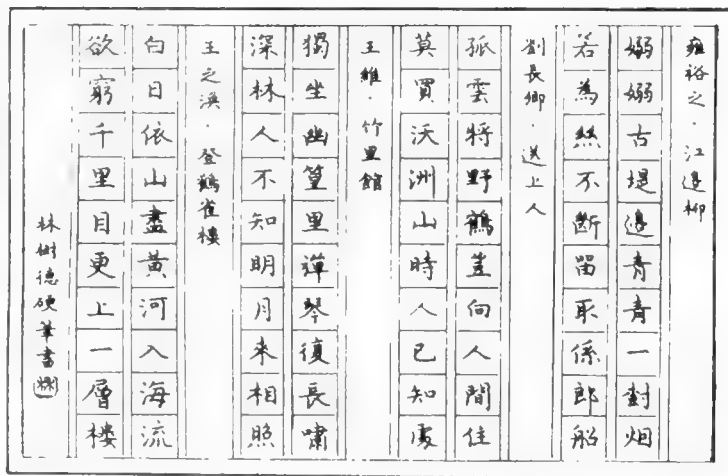 雍裕之·江邊柳
嫋嫋古堤邊青青一對烟
若為絲不斷留取係郎船
劉長卿·送上人
孤雲將野鶴豈向人間住
莫買沃洲山時人已知處
王維·竹里館
獨坐幽篁里彈琴復長嘯
深林人不知明月來相照
王之渙·登鶴雀樓
白日依山盡黃河入海流
欲窮千里目更上一層樓
林樹德硬筆書